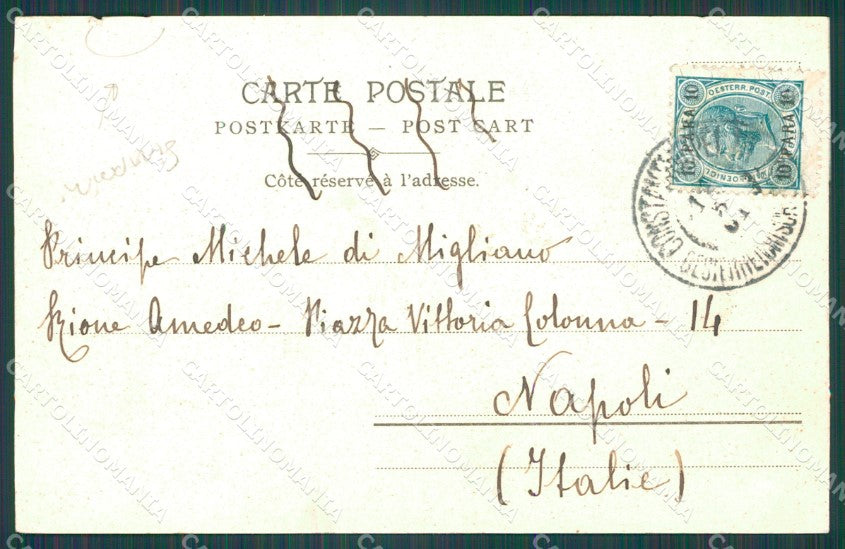 CARTE POSTALE
POSTKARTE — POST CART
Côte réservé à l'adresse.
10 PARA 10
OESTERR. POST
10 PARA 10
CONSTANTI
OESTERREICHISCH
Principe Michele di Migliano
Rione Amedeo - Piazza Vittoria Colonna - 14
Napoli
(Italie)
CARTOLINOMANIA